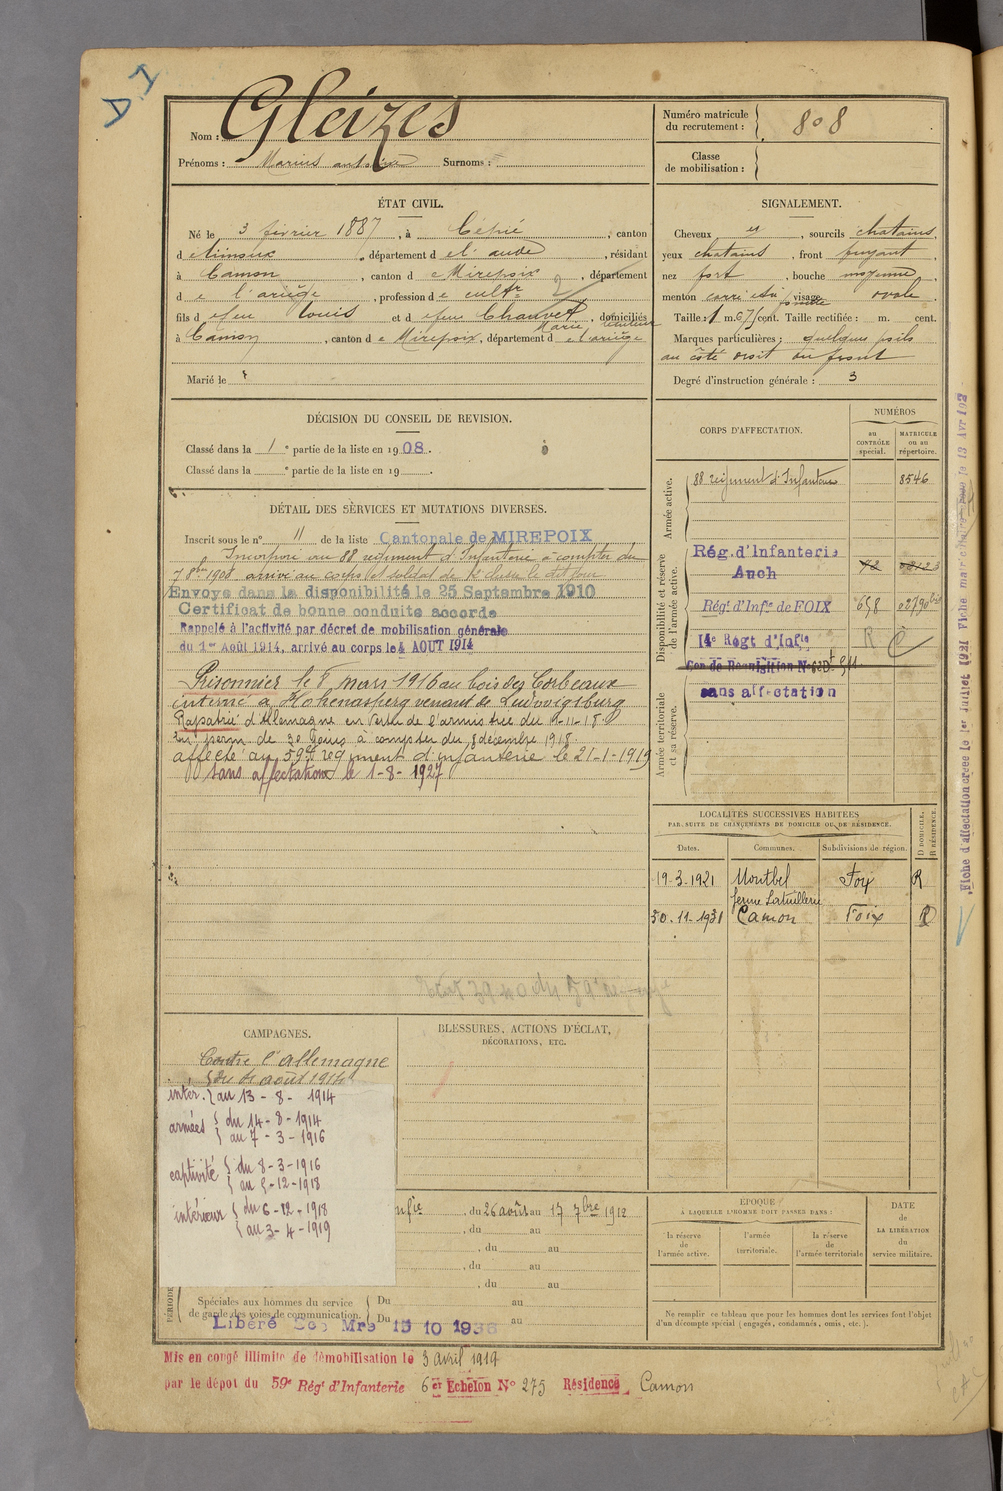 Nom : Gleizes
Prénoms : Marius antoine Surnoms :
Numéro matricule
du recrutement : 808
Classe
de mobilisation :
ÉTAT CIVIL.
Né le 3 février 1887, à Cépié, canton
de limoux, département de l'aude, résidant
à Camon, canton de Mirepoix, département
de l'ariège, profession de cultr 2
fils de feu Louis et de feu Chauvet, domiciliés
Marie
à Camon, canton de Mirepoix, département de l'ariège
Marié le
SIGNALEMENT.
Cheveux et, sourcils chatains,
yeux chatains, front fuyant,
nez fort, bouche moyenne,
menton visage ovale
Taille : 1 m. 67 cent. Taille rectifiée : m. cent.
Marques particulières : quelques poils
au côté droit du front
Degré d'instruction générale : 3
DÉCISION DU CONSEIL DE REVISION.
Classé dans la 1e partie de la liste en 1908.
Classé dans la e partie de la liste en 19 .
DÉTAIL DES SERVICES ET MUTATIONS DIVERSES.
Inscrit sous le n° 11 de la liste Cantonale de MIREPOIX
Incorporé au 88 régiment d'Infanterie à compter du
7 8bre 1908 arrivé au corps et soldat de 2e classe le dit jour
Envoyé dans la disponibilité le 25 Septembre 1910
Certificat de bonne conduite accordé
Rappelé à l'activité par décret de mobilisation générale
du 1er Août 1914, arrivé au corps le 4 AOUT 1914
Prisonnier le 8 mars 1916 au bois des Corbeaux
interné à Hohenasperg venant de Ludwigsburg
Rapatrié d'Allemagne en vertu de l'armistice du 11-11-18
perm de 30 jours à compter du 8 décembre 1918.
affecté au 59e régiment d'infanterie le 21-1-1919
sans affectation le 1-8-1927
CORPS D'AFFECTATION.
NUMÉROS
au
CONTRÔLE
spécial.
MATRICULE
ou au
répertoire.
Armée active.
88 régiment d'Infanterie 8546
Disponibilité et réserve
de l'armée active.
Rég. d'Infanterie
Auch
Régt d'Infie de FOIX 02790
14e Régt d'Infie R
Armée territoriale
et sa réserve.
sans affectation
LOCALITÉS SUCCESSIVES HABITÉES
PAR SUITE DE CHANGEMENTS DE DOMICILE OU DE RÉSIDENCE.
Dates.
Communes.
Subdivisions de région.
D DOMICILE.
R RÉSIDENCE.
19-3-1921 Montbel Foix R
30-11-1931 Camon Foix R
CAMPAGNES.
Contre l'allemagne
du 4 août 1914
inter. au 13-8-1914
armées du 14-8-1914
au 7-3-1916
captivité du 8-3-1916
au 5-12-1918
intérieur du 6-12-1918
au 3-4-1919
BLESSURES, ACTIONS D'ÉCLAT,
DÉCORATIONS, ETC.
, du 26 août au 17 7bre 1912
, du au
, du au
, du au
, du au
Spéciales aux hommes du service
de garde des voies de communication.
Du au
Du au
Libéré 15 10 1936
ÉPOQUE
À LAQUELLE L'HOMME DOIT PASSER DANS :
la réserve
de
l'armée active.
l'armée
territoriale.
la réserve
de
l'armée territoriale
DATE
de
LA LIBÉRATION
du
service militaire.
Ne remplir ce tableau que pour les hommes dont les services font l'objet
d'un décompte spécial (engagés, condamnés, omis, etc.).
Mis en congé illimité de démobilisation le 3 avril 1919
par le dépot du 59e Régt d'Infanterie 6e Echelon N° 275 Résidence Camon
Fiche d'affectation créée le 1er Juillet 1921